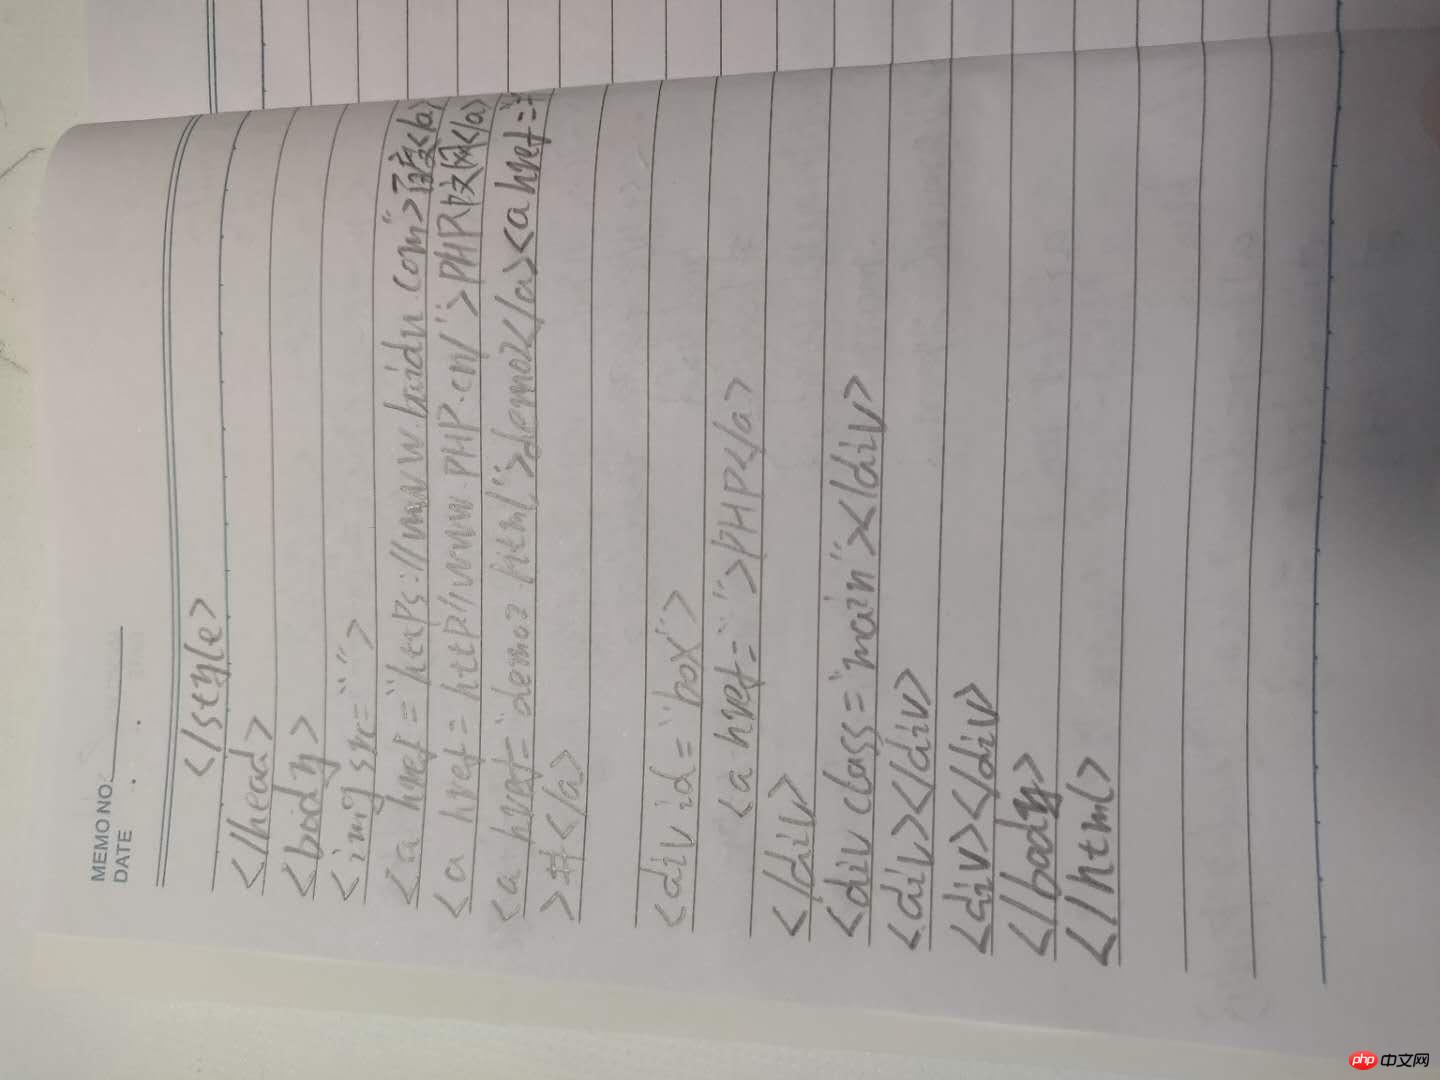 MEMO NO.
DATE
</style>
</head>
<body>
<img src="">
<a href="https://www.baidu.com">百度</a>
<a href=http://www.PHP.cn/">PHP中文网</a>
<a href="demo2.html">demo2</a><a href="#"
>#</a>
<div id="box">
<a href="">PHP</a>
</div>
<div class="main"></div>
<div></div>
<div></div>
</body>
</html>
php 中文网